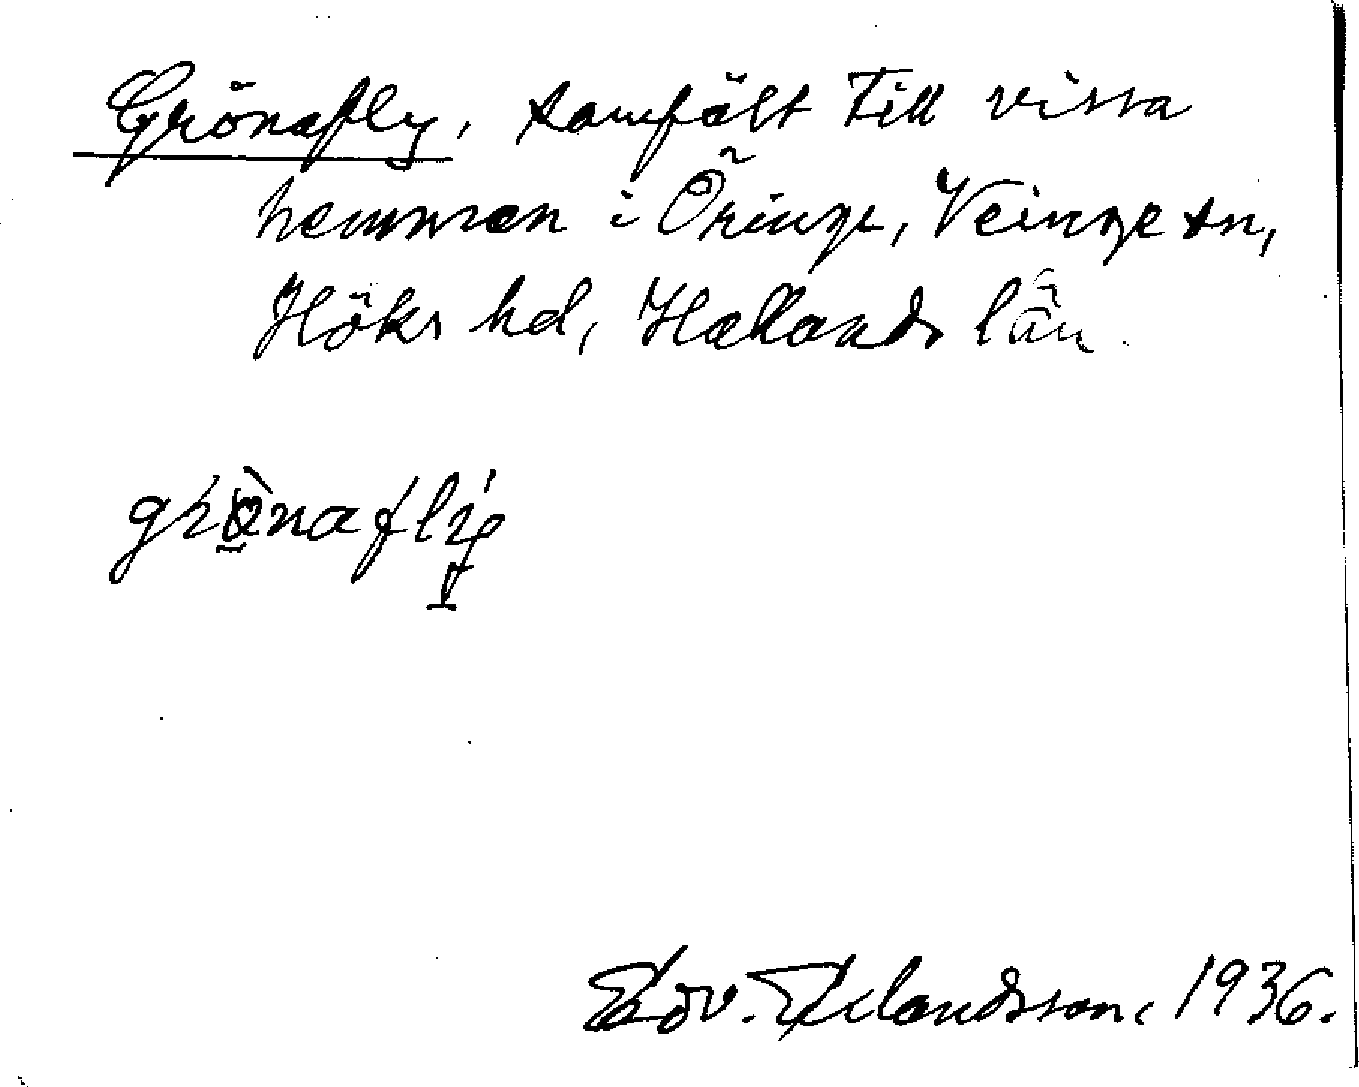 Grönafly, samfält till vissa
hemman i Öringe, Veinge sn,
Höks hd, Hallands län.
grö̀naflý
Edv. Erlandsson, 1936.